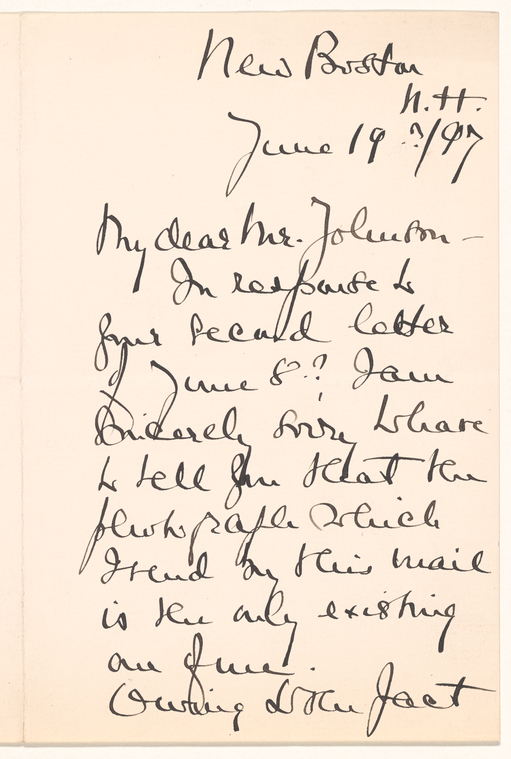 New Boston
N.H.
June 19?/97
My dear Mr. Johnson –
In response to
your second letter
of June 8? I am
sincerely sorry to have
to tell you that the
photograph which
I send by this mail
is the only existing
one of me.
Owing to the fact